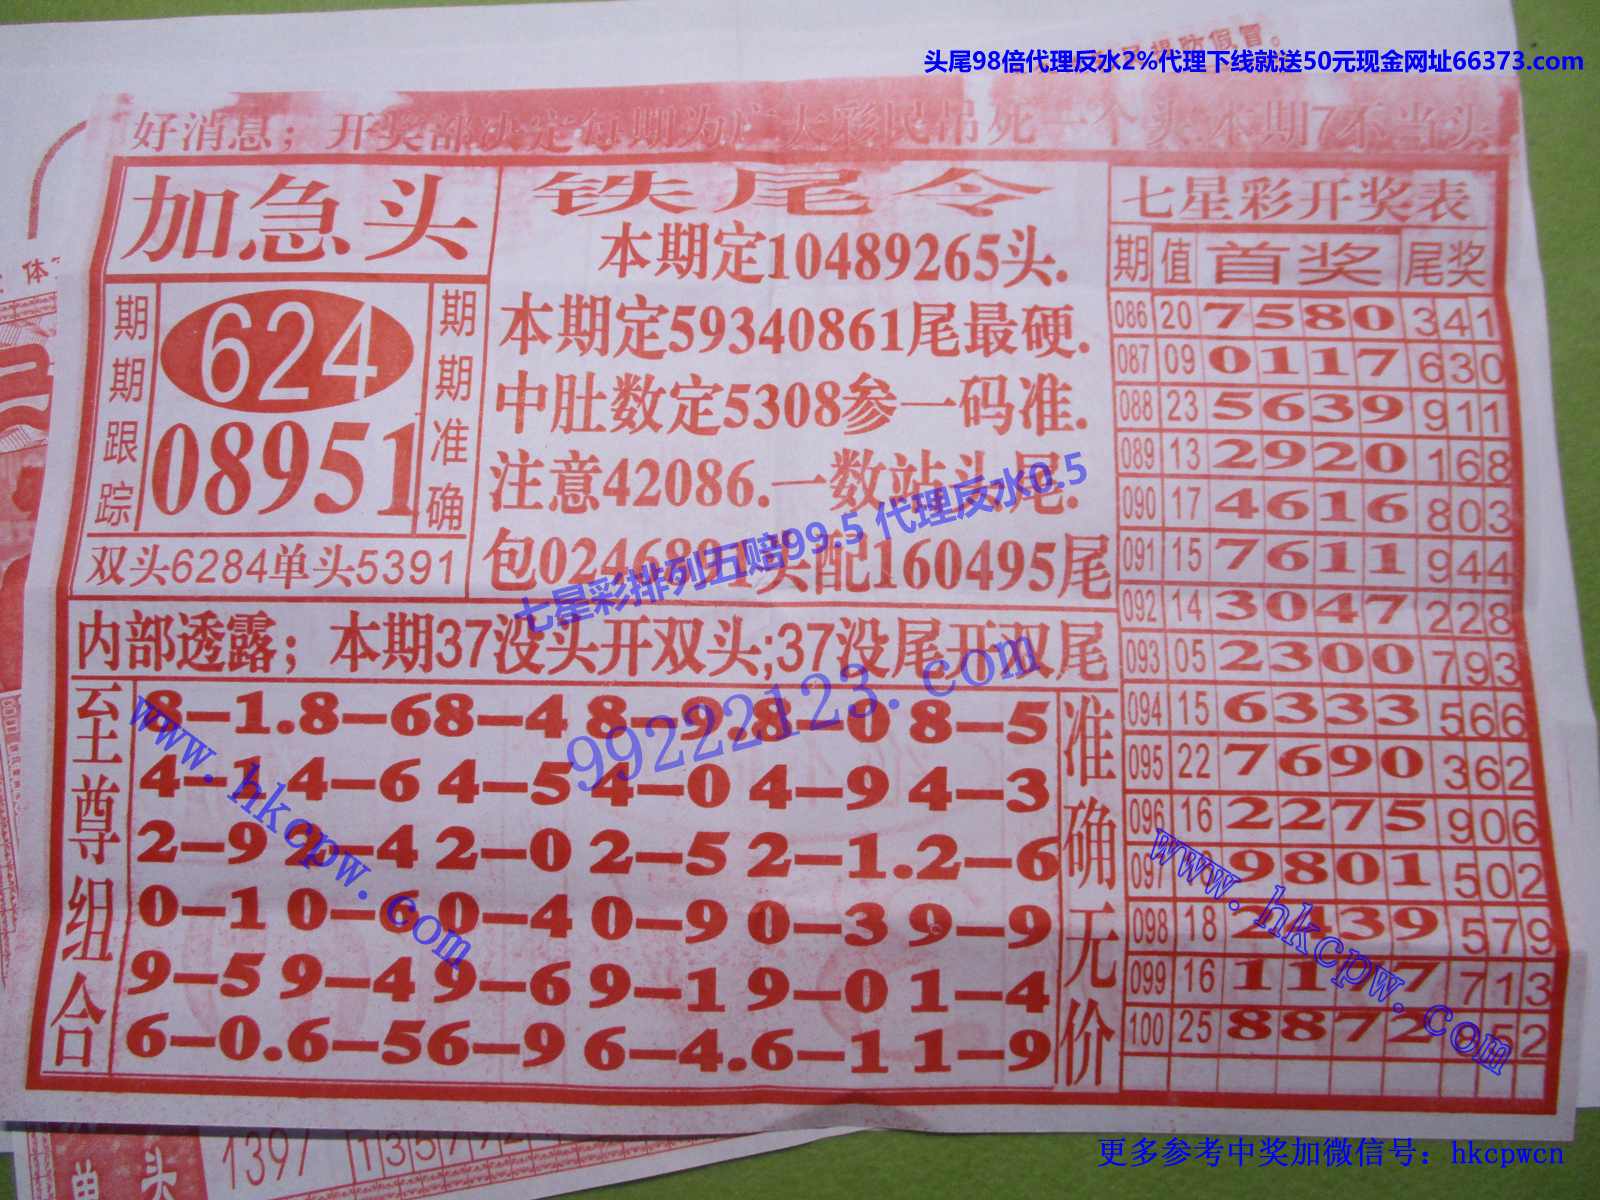 头尾98倍代理反水2%代理下线就送50元现金网址66373.com
好消息；开奖部决定每期为广大彩民吊死一个头本期7不当头
加急头
期期跟踪
624
08951
期期准确
双头6284单头5391
铁尾令
本期定10489265头.
本期定59340861尾最硬.
中肚数定5308参一码准.
注意42086.一数站头尾.
包0246891头配160495尾
七星彩排列五赔99.5 代理反水0.5
内部透露；本期37没头开双头;37没尾开双尾
99222123.com
至尊组合
8-1.8-68-4 8-9.8-0 8-5
4-1.4-6 4-5 4-0 4-9 4-3
2-9 2-4 2-0 2-5 2-1.2-6
0-1 0-6 0-4 0-9 0-3 9-9
9-5 9-4 9-6 9-1 9-0 1-4
6-0.6-56-9 6-4.6-1 1-9
准确无价
www.hkcpw.com
七星彩开奖表
期 值 首奖 尾奖
086 20 7580 341
087 09 0117 630
088 23 5639 911
089 13 2920 168
090 17 4616 803
091 15 7611 944
092 14 3047 228
093 05 2300 793
094 15 6333 566
095 22 7690 362
096 16 2275 906
097 9801 502
098 18 2439 579
099 16 1177 713
100 25 8872 52
www.hkcpw.com
单头
1397
更多参考中奖加微信号：hkcpwcn